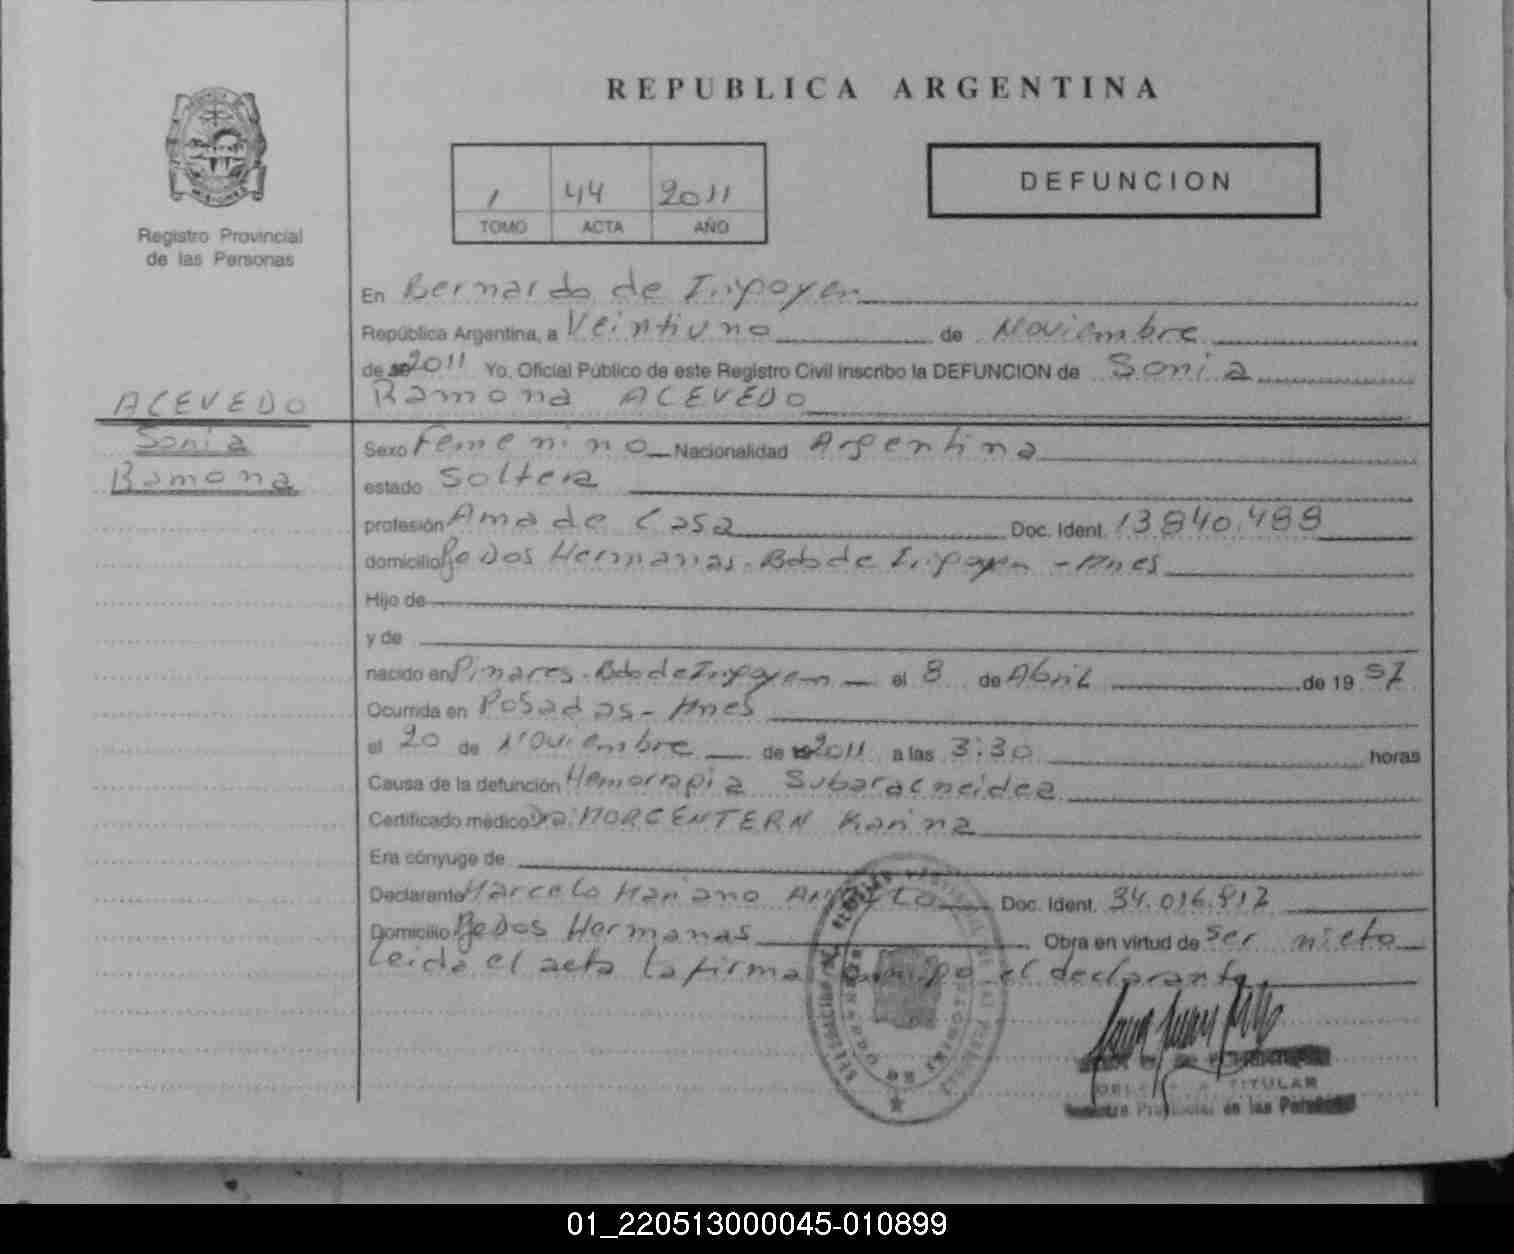 REPUBLICA ARGENTINA
1 44 2011
TOMO ACTA AÑO
DEFUNCION
Registro Provincial
de las Personas
En Bernardo de Irigoyen
República Argentina, a Veintiuno de Noviembre
de 2011 Yo, Oficial Público de este Registro Civil inscribo la DEFUNCION de Sonia
Ramona ACEVEDO
ACEVEDO
Sonia
Ramona
Sexo Femenino Nacionalidad Argentina
estado Soltera
profesión Ama de Casa Doc. Ident. 13.840.488
domicilio Dos Hermanas. Bdo de Irigoyen - Mnes
Hijo de
y de
nacido en Pinares. Bdo de Irigoyen el 8 de Abril de 19 57
Ocurrida en Posadas - Mnes
el 20 de Noviembre de 2011 a las 3:30 horas
Causa de la defunción Hemorragia Subaracneidea
Certificado médico Dra. MORCENTERN Karina
Era cónyuge de
Declarante Marcelo Mariano Doc. Ident. 34.016.812
Domicilio Dos Hermanas Obra en virtud de Ser nieto
leida el acta la firma conmigo el declarante
TITULAR
de las
01_220513000045-010899